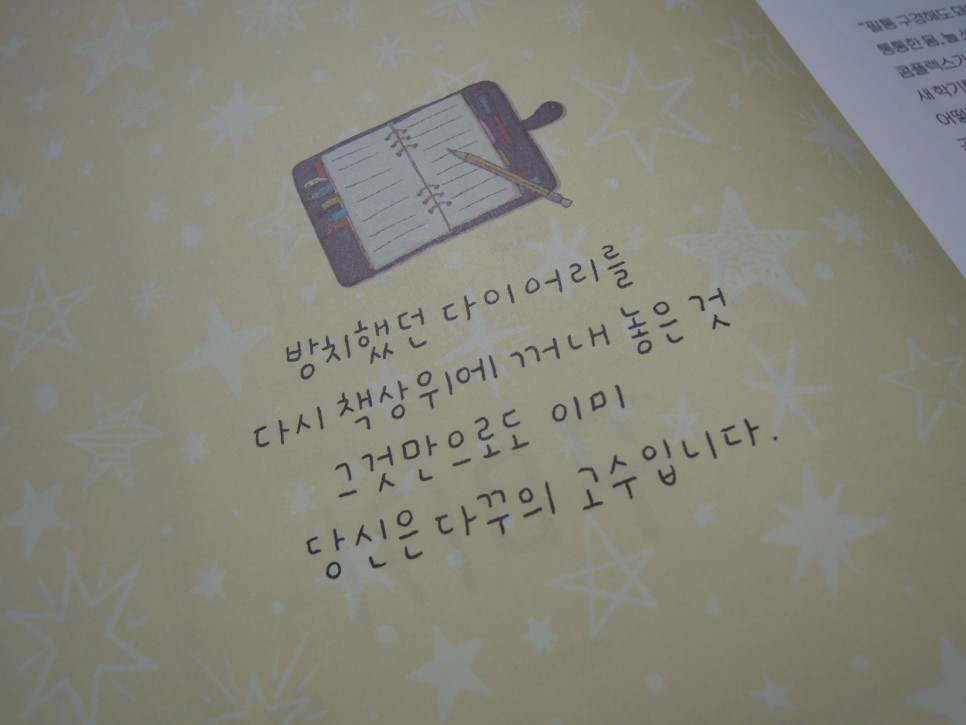 방치했던 다이어리를
다시 책상위에 꺼내 놓은 것
그것만으로도 이미
당신은 다꾸의 고수입니다.
"필통 구경해도
통통한 몸, 늘
콤플렉스가
새 학기